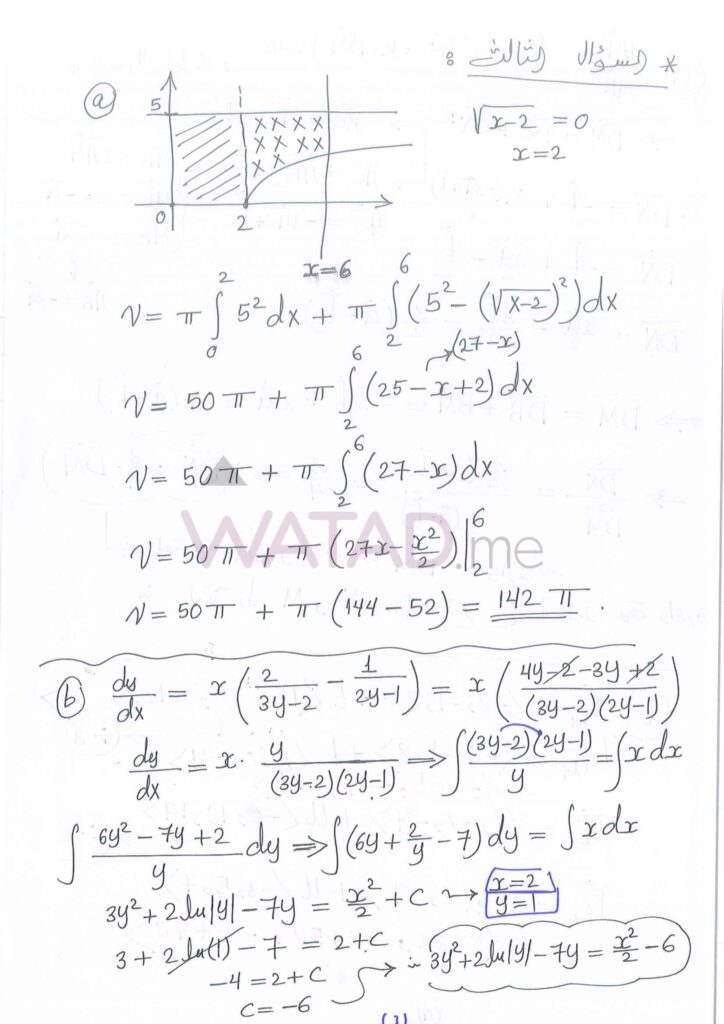 * السؤال الثالث :
ⓐ
√(x-2) = 0
x = 2
5
0
2
x=6
V = π ∫₀² 5² dx + π ∫₂⁶ (5² - (√(x-2))²) dx
(27-x)
V = 50π + π ∫₂⁶ (25 - x + 2) dx
V = 50π + π ∫₂⁶ (27 - x) dx
V = 50π + π (27x - x²/2) |₂⁶
V = 50π + π (144 - 52) = 142 π .
WATAD.me
ⓑ dy/dx = x (2/(3y-2) - 1/(2y-1)) = x ((4y-2-3y+2)/((3y-2)(2y-1)))
dy/dx = x · y/((3y-2)(2y-1)) ⟹ ∫ (3y-2)(2y-1)/y = ∫ x dx
∫ (6y² - 7y + 2)/y dy ⟹ ∫ (6y + 2/y - 7) dy = ∫ x dx
3y² + 2 ln|y| - 7y = x²/2 + C → x=2 y=1
3 + 2 ln(1) - 7 = 2 + C
-4 = 2 + C
C = -6
∴ 3y² + 2 ln|y| - 7y = x²/2 - 6
(3)